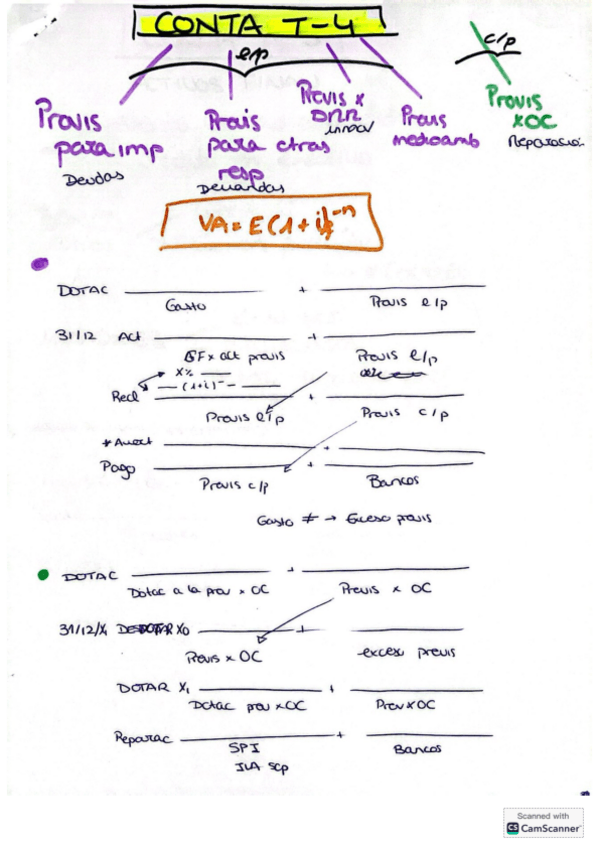 CONTA T-4
e/p
c/p
Provis para imp
Deudas
Provis para otras resp
Demandas
Provis x DRR
Provis medioamb
Provis x OC
Reparació.
VA = E(1+i)^-n
DOTAC + 
Gasto Provis e/p
31/12 Act +
GF x act provis Provis e/p
X%
(1+i)^-
Recl +
Provis e/p Provis c/p
+
Pago +
Provis c/p Bancos
Gasto ≠ → Exceso provis
DOTAC +
Dotac a la prov x OC Provis x OC
31/12/X1 X0 +
Provis x OC exceso provis
DOTAR X1 +
Dotac prov x OC Prov x OC
Reparac +
SPI Bancos
Scanned with
CS CamScanner